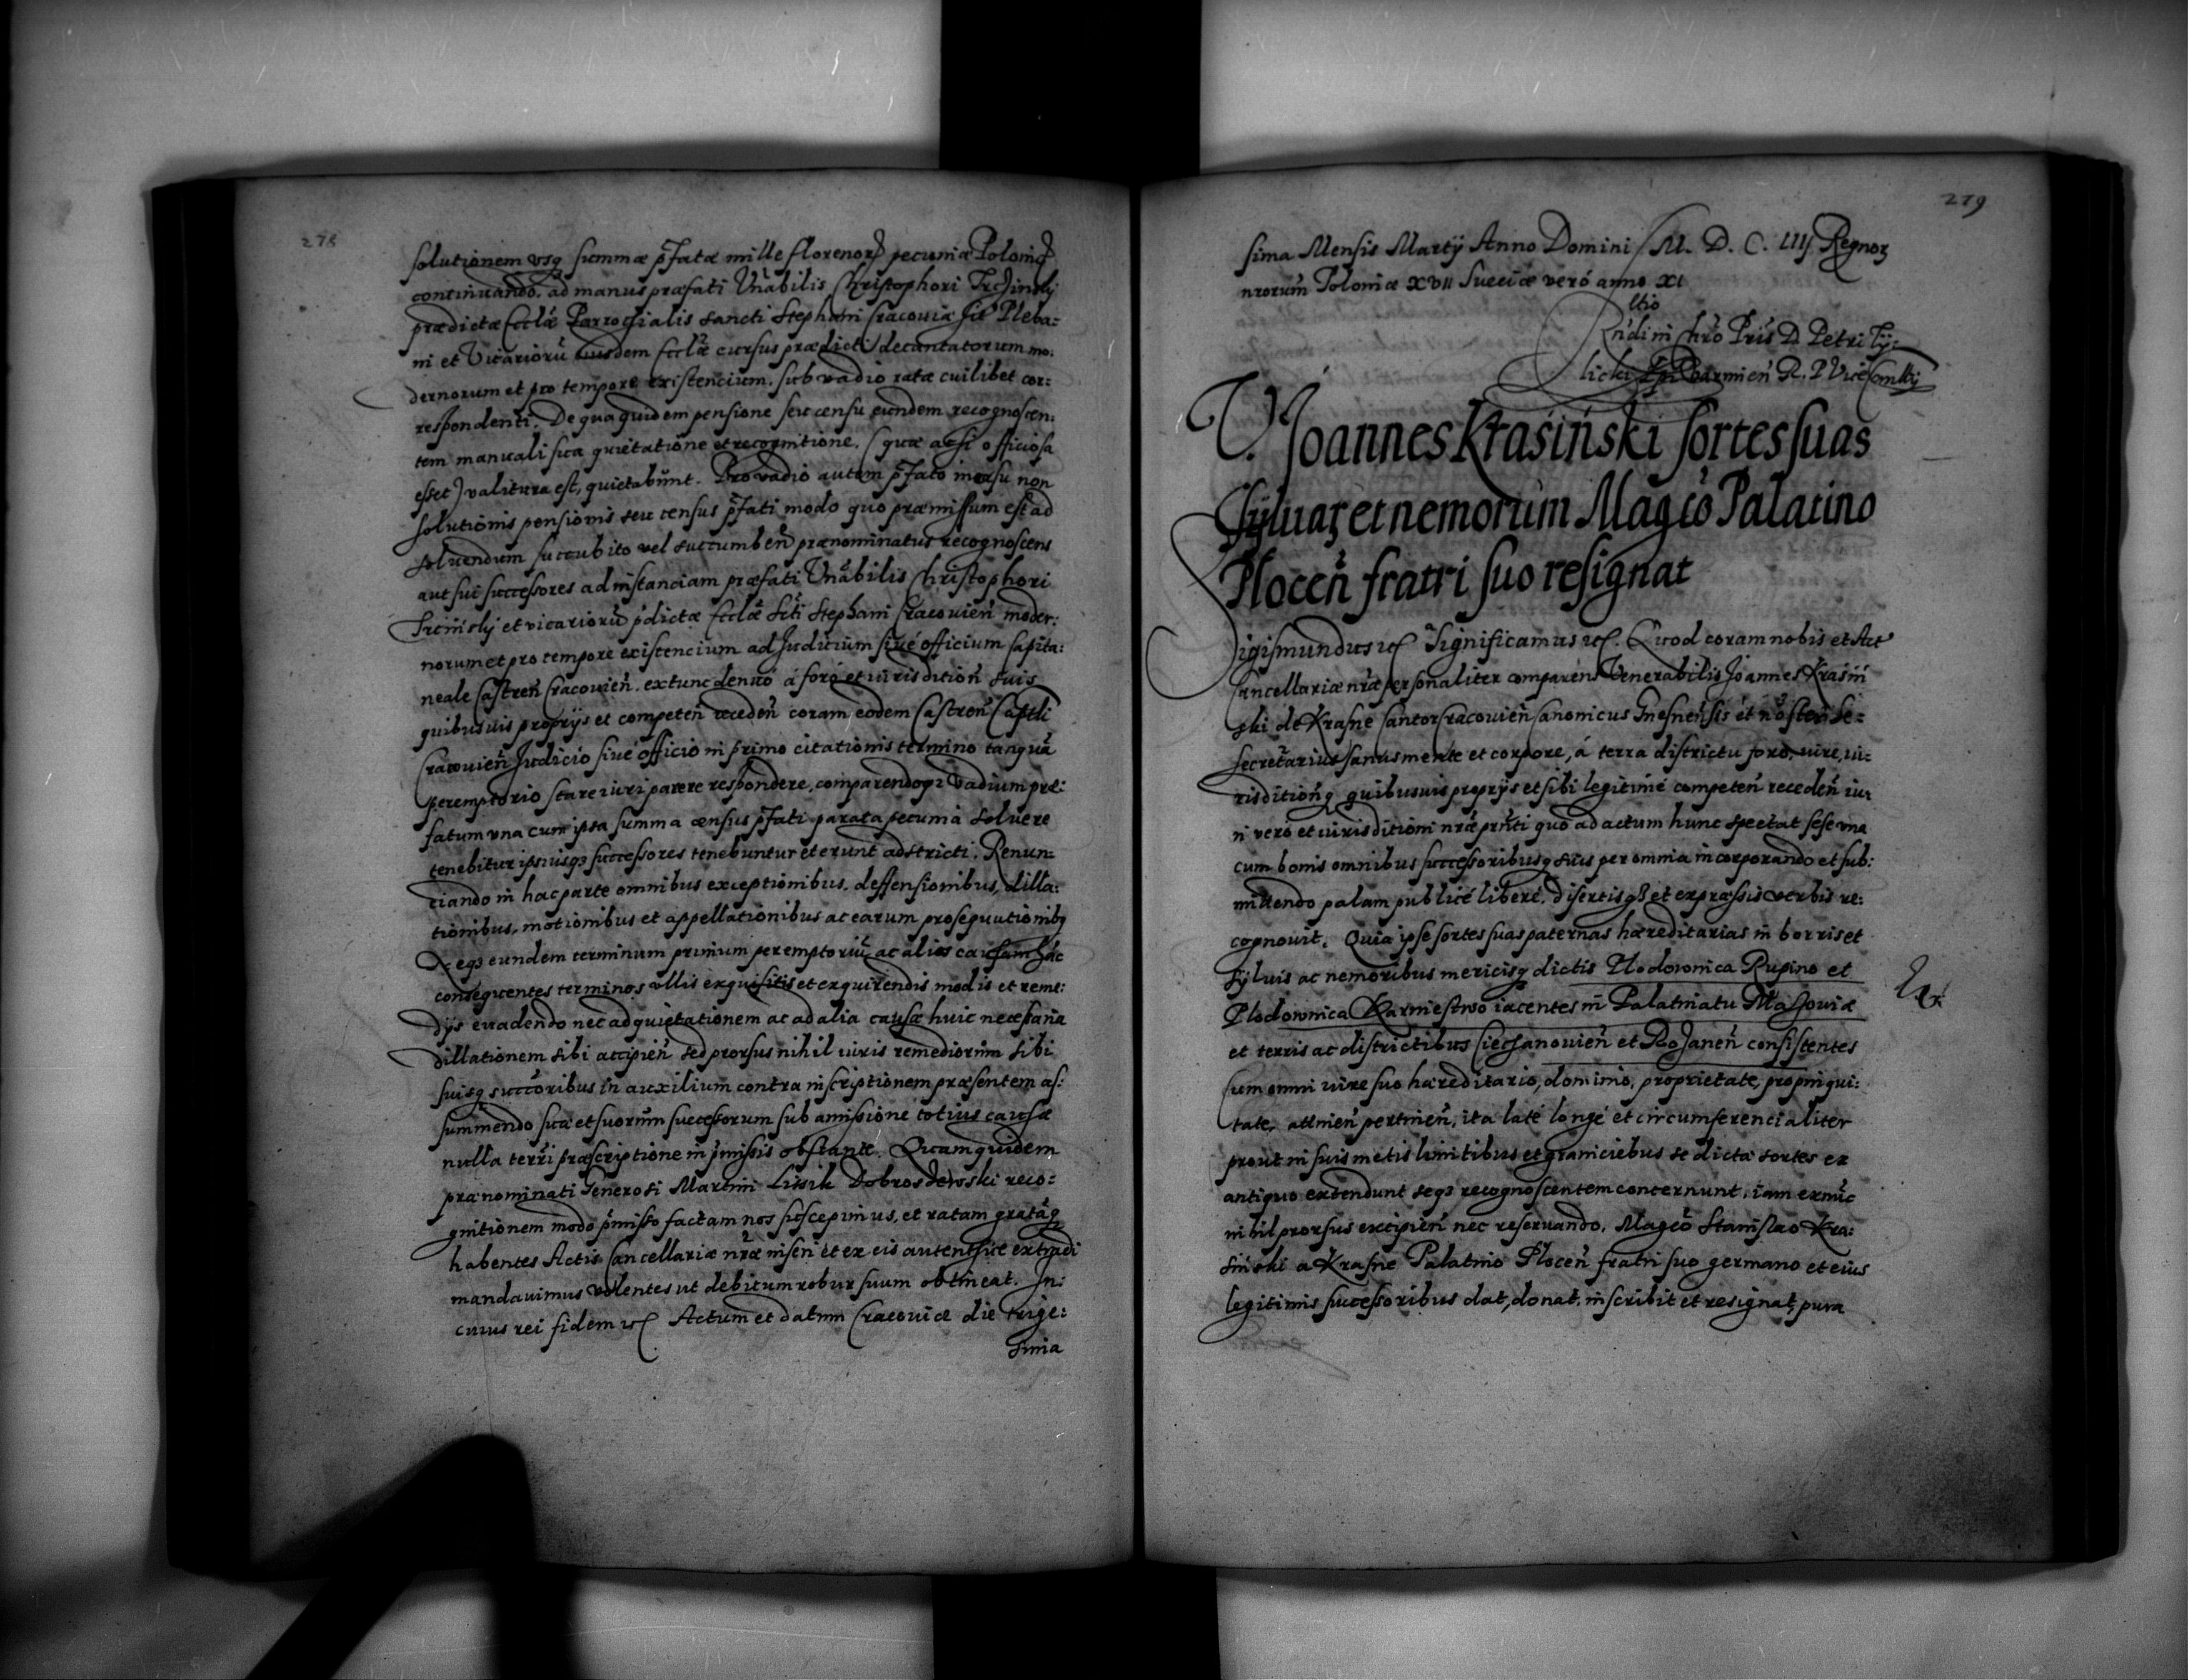 278
solutionem usq summæ p̃fatæ mille florenorũ pecuniæ Polonicͣ
continuando. ad manus præfati Vñabilis Christophori Trzinskÿ
prædictæ Eccl̃æ Parrochialis sancti Stephani Cracoviæ siti Pleba:
ni et Vicariorũ eiusdem Eccl̃æ cursus prædicti decantatorum mo:
dernorum et pro tempore existencium. sub vadio ratæ cuilibet cor:
respondenti. De qua quidem pensione seu censu eundem recognoscen:
tem manuali sua quietatione et recognitione, (quæ acsi officiosa
esset) valitura est, quietabunt. Pro vadio autem p̃fato in casu non
solutionis pensionis seu census p̃fati modo quo præmissum est ad
solvendum succubito vel succumbeñ prænominatus recognoscens
aut sui successores ad instanciam præfati Vñabilis Christophori
Trciñskÿ et vicariorũ p̃dictæ Eccl̃æ Scti Stephani Cracovieñ moder:
norum et pro tempore existencium ad Judicium sivé officium Capita:
neale Castreñ Cracovieñ. extunc denuo á foro et iurisdictioñ suis
quibusuis proprÿs et competeñ recedeñ coram eodem Castreñ Captli
Cracovieñ Judicio sivé officio in primo citationis termino tanquã
peremptorio stare iuri parere respondere, comparendoq; Vadium præ:
fatum una cum ipsa summa census p̃fati parata pecunia solvere
tenebitur ipsiusq; successores tenebuntur et erunt adstricti. Renun:
ciando in hac parte omnibus exceptionibus. deffensionibus, dilla:
tionibus, motionibus et appellationibus ac earum prosequutionibq
Neq; eundem terminum primum peremptoriũ ac alios causam hác
consequentes terminos ullis exquisitis et exquirendis modis et reme:
dÿs evadendo nec ad quietationem ac ad alia causæ huic necessaria
dillationem sibi accipieñ sed prorsus nihil iuris remediorum sibi
suisq succ̃oribus in auxilium contra inscriptionem præsentem as:
summendo sua et suorum successorum sub amissione totius causæ
nulla terr̃i præscriptione in p̃missis obstante. Quam quidem
prænominati Generosi Martini Lissik Dobrosdewski reco:
gnitionem modo p̃misso factam nos suscepimus, et ratam gratãq
habentes Actis Cancellariæ nr̃æ inseri et ex eis autenthicé extradi
mandavimus volentes ut debitum robur suum obtineat. In:
cuius rei fidem etc Actum et datum Cracoviæ die trige:
sima
279
sima Mensis Martÿ Anno Domini M. D. C. IIIJ Regnor
nrorum Poloniæ XVII Sueciæ veró anno XI
ltio
Rñdi in Chrõ Pris D. Petri Tÿ:
licki Epi Varmieñ R. P Vicecanllrÿ
V. Joannes Krasiński sortes suas
Sÿluaꝝ et nemorum Magco Palatino
Ploceñ fratri suo resignat
Sigismundus etc Significamus etc. Quod coram nobis et Act
Cancellariæ nræ personaliter comparens Venerabilis Joannes Krasiń
ski de Krasne Cantor Cracovieñ Canonicus Gnesneñsis et noster Se:
secretarius sanus mente et corpore, á terra districtu foro, iure, iu:
risditioñq quibusuis proprÿs et sibi legitimé competeñ recedeñ iu:
ri veró et iurisditioni nræ prñti quo ad actum hunc spectat sese una
cum bonis omnibus successoribusq suis per omnia incorporando et sub:
mittendo palam publicé liberé, disertisq; et expressis verbis re:
cognouit. Quia ipse sortes suas paternas hæreditarias in borris et
sÿluis ac nemoribus mericisq dictis Plodownica Rupino et
Plodownica Karniestwo iacentes in Palatinatu Massoviæ
et terris ac districtibus Ciechanovieñ et Rozaneñ consistentes
Cum omni iure suo hæreditario, dominio, proprietate, propinqui:
tate, attineñ pertineñ, ita laté longé et circumferencialiter
prout in suis metis limitibus et graniciebus se dictæ sortes ex
antiquo extendunt seq; recognoscentem concernunt, iam exnũc
nihil prorsus excipieñ nec reservando. Magcõ Stanislao Kra:
siński a Krasne Palatino Ploceñ fratri suo germano et eius
legitimis successoribus dat, donat, inscribit et resignat, pura